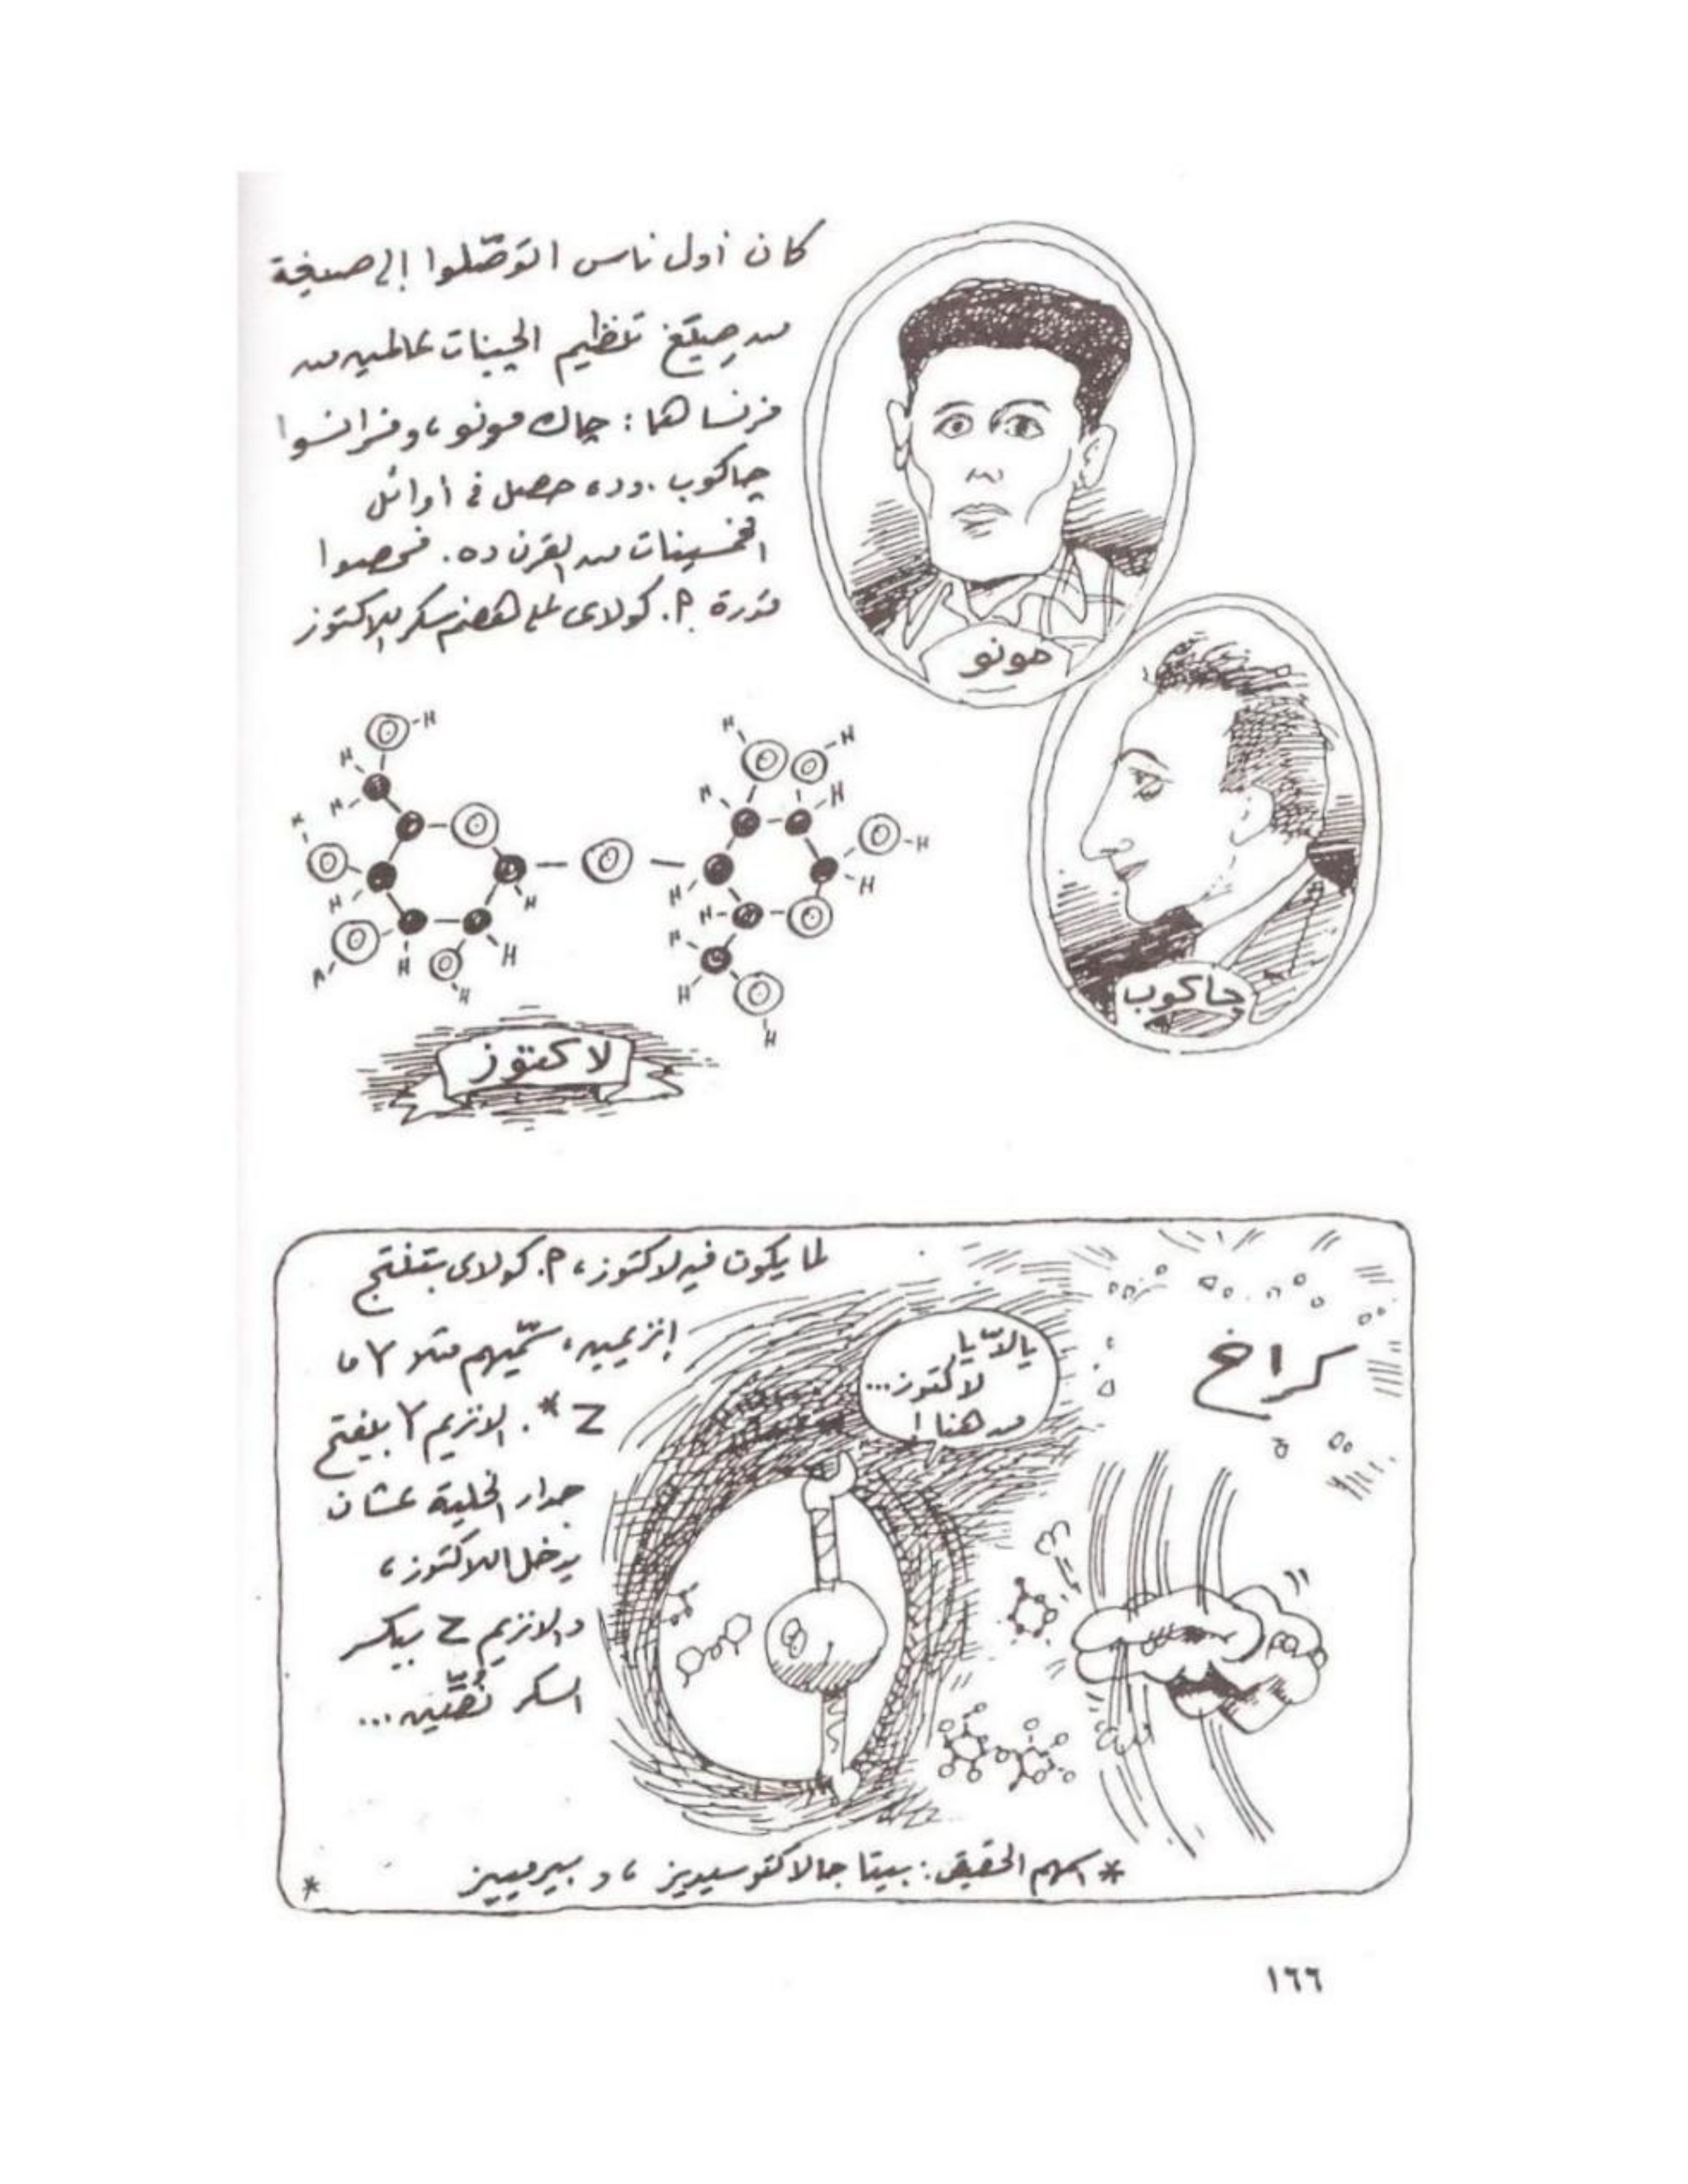 كان أول ناس اتوصّلوا إلى صيغة
من صيَغ تنظيم الچينات عالمين من
فرنسا هما: چاك مونو، وفرانسوا
چاكوب. وده حصل فى أوائل
الخمسينات من القرن ده. فحصوا
قدرة إ. كولاى على هضم سكر اللاكتوز
مونو
جاكوب
لاكتوز
لما يكون فيه لاكتوز، إ. كولاى بتنتج
إنزيمين، سمّيهم مثلا Y، و
Z *. الإنزيم Y بيفتح
جدار الخلية عشان
يدخل اللاكتوز،
والإنزيم Z بيكسر
السكر نُصّين...
يالاّ يا
لاكتوز...
من هنا!
كراخ
* اسمهم الحقيقى: بيتا جالاكتوسيديز، و بيرمييز
*
١٦٦